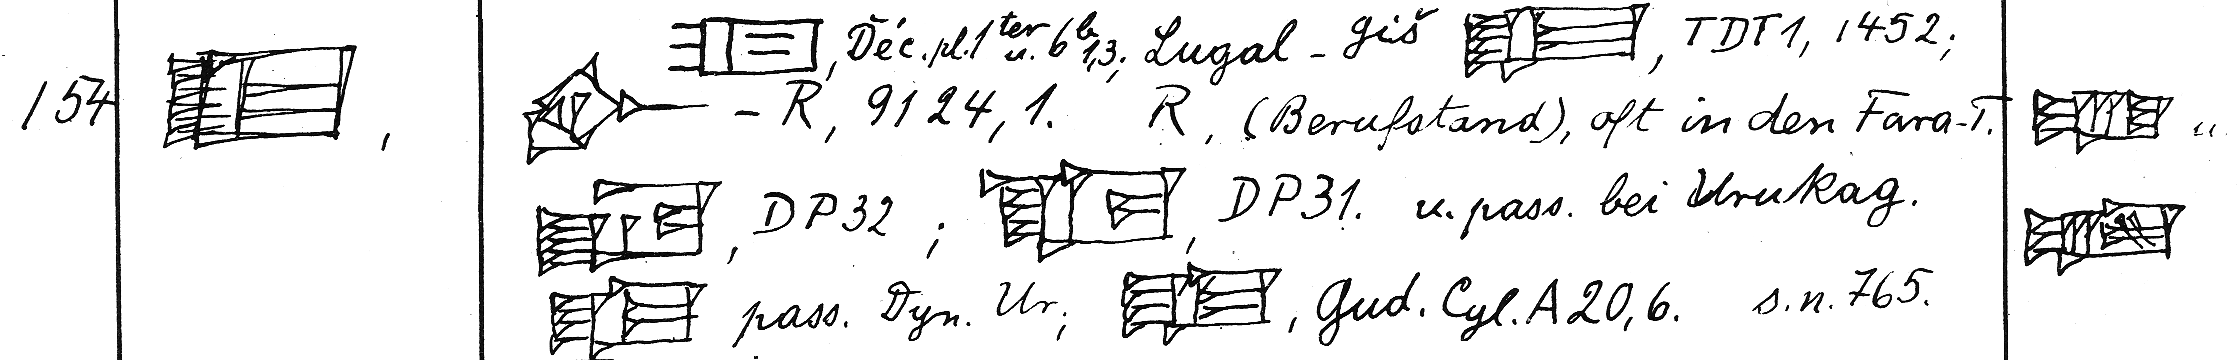 , Déc. pl. 1 ter u. 6 b 1,3; Lugal - giš , TDT 1, 1452;
154 , - R, 9124, 1. R, (Berufstand), oft in den Fara-T. u.
, DP 32 ; , DP 31. u. pass. bei Urukag.
pass. Dyn. Ur; , Gud. Cyl. A 20, 6. s. n. 765.